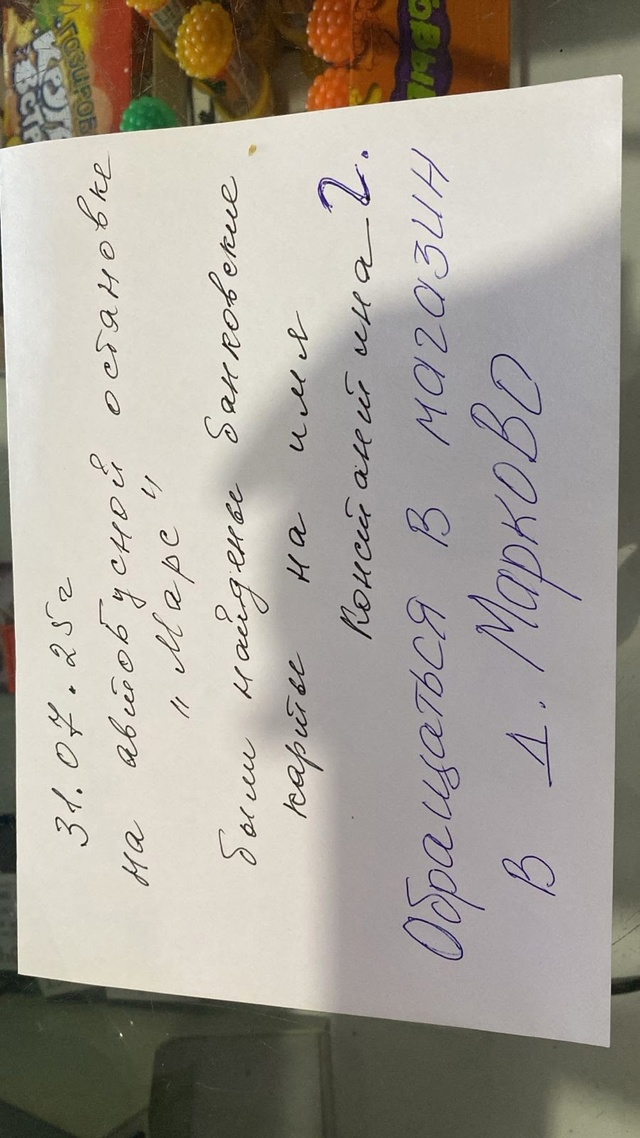 31.07.25г
на автобусной остановке
"Марс"
были найдены банковские
карты на имя
Константина Г.
Обращаться в магазин
в д. Марково